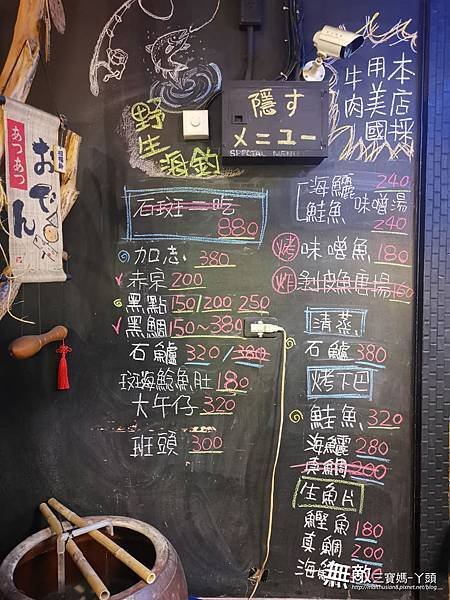 本店採
用美國
牛肉
隠す
メニュー
SPECIAL MENU
野生海釣
あつあつ
おでん
石斑二吃
880
加志 380
赤宗 200
黑點 150/200 250
黑鯛 150~380
石鱸 320/380
斑海鯰魚肚 180
大午仔 320
班頭 300
海鱺 240
鮭魚 味噌湯
240
烤 味噌魚 180
炸 剝皮魚唐揚 160
清蒸
石鱸 380
烤下巴
鮭魚 320
海鱺 280
真鯛 200
生魚片
鰹魚 180
真鯛 200
無敵三寶媽-丫頭